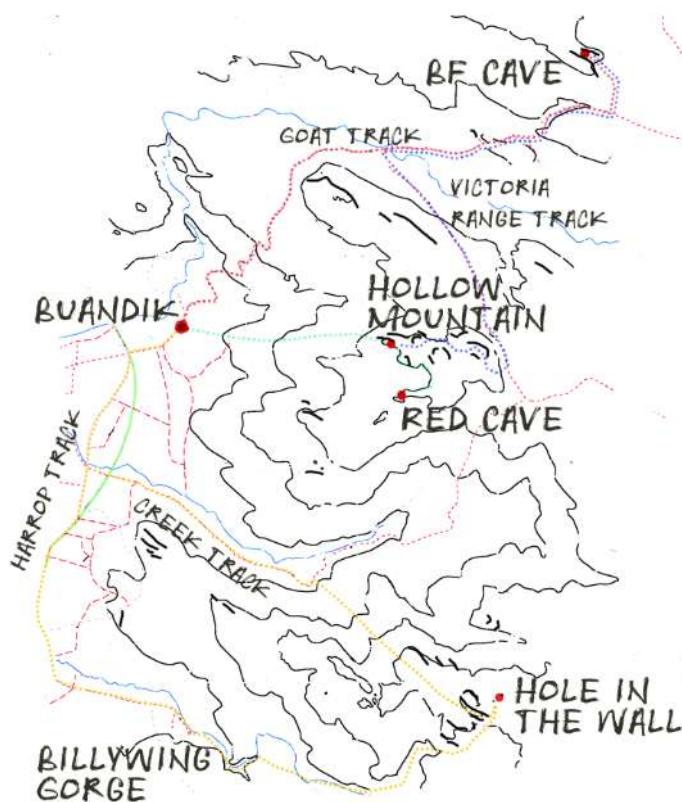 BF CAVE
GOAT TRACK
VICTORIA
RANGE TRACK
HOLLOW
MOUNTAIN
BUANDIK
RED CAVE
HARROP TRACK
CREEK TRACK
HOLE IN
THE WALL
BILLYWING
GORGE